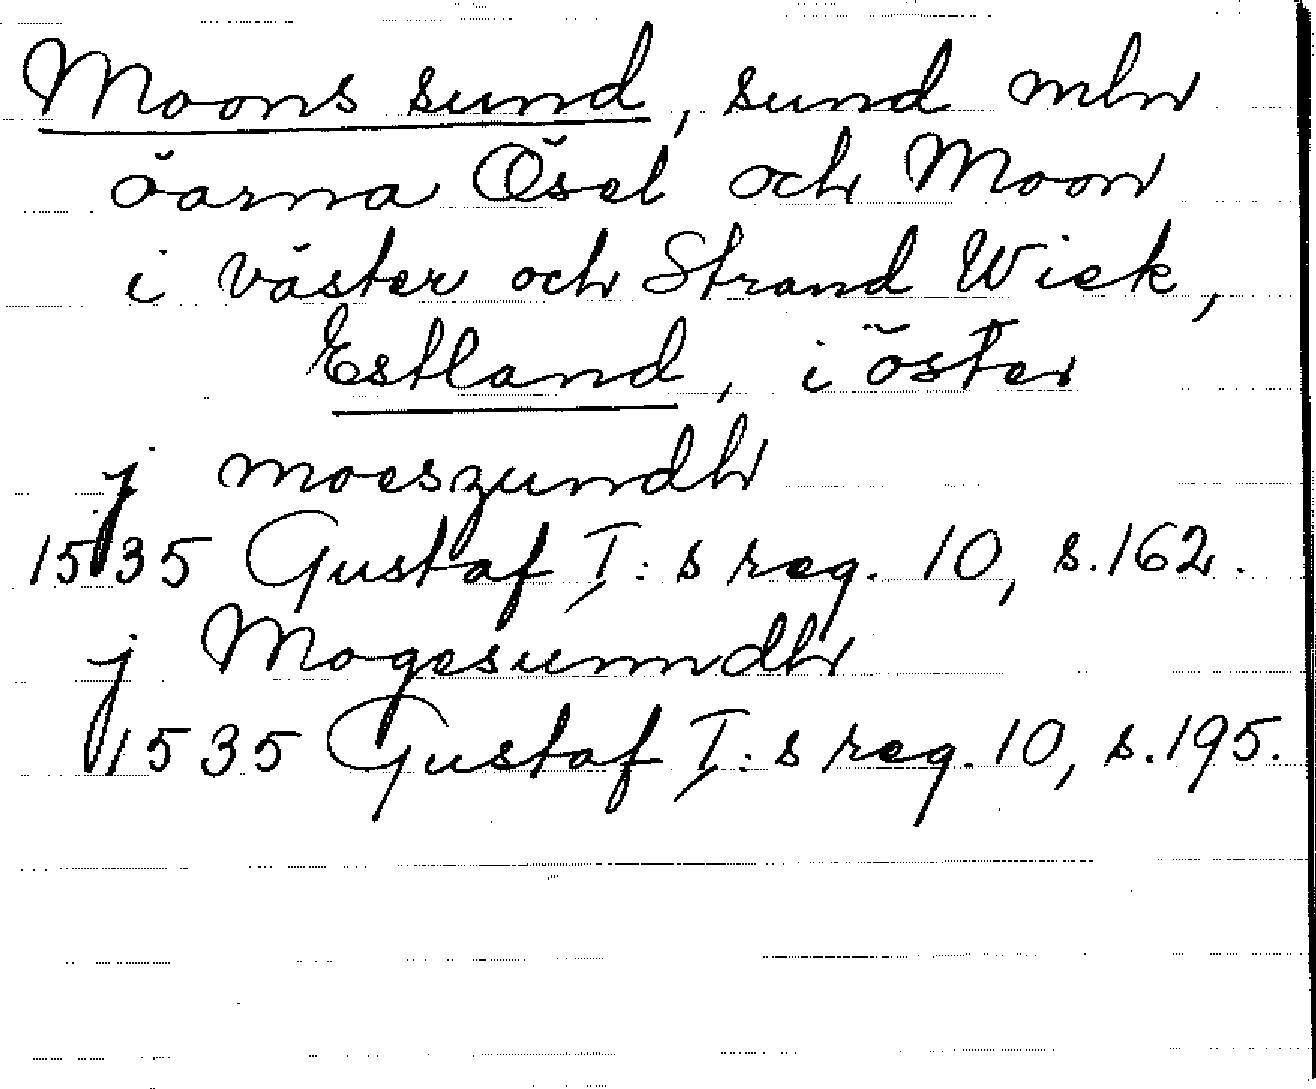 Moons sund, sund mln
öarna Ösel och Moon
i väster och Strand Wiek,
Estland, i öster
j moeszundh
1535 Gustaf I:s reg. 10, s. 162.
j Mogesunndh
1535 Gustaf I:s reg. 10, s. 195.